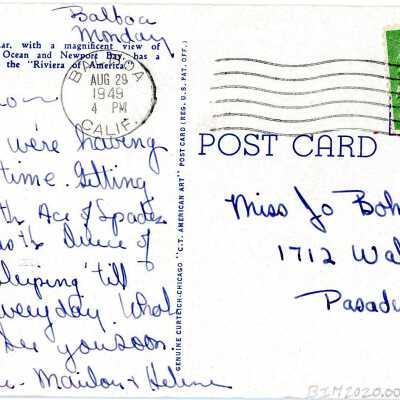 Balboa
Monday
ar, with a magnificent view of
Ocean and Newport Bay, has a
the "Riviera of America."
BALBOA
AUG 29
1949
4 PM
CALIF.
were having
time. Getting
Ace of Spades
as the deuce of
sleeping 'till
everyday. What
see you soon.
Mailon & Helene
GENUINE CURTEICH-CHICAGO "C.T. AMERICAN ART" POST CARD (REG. U.S. PAT. OFF.)
POST CARD
Miss Jo Boh
1712 Wal
Pasad
BIM2020.00